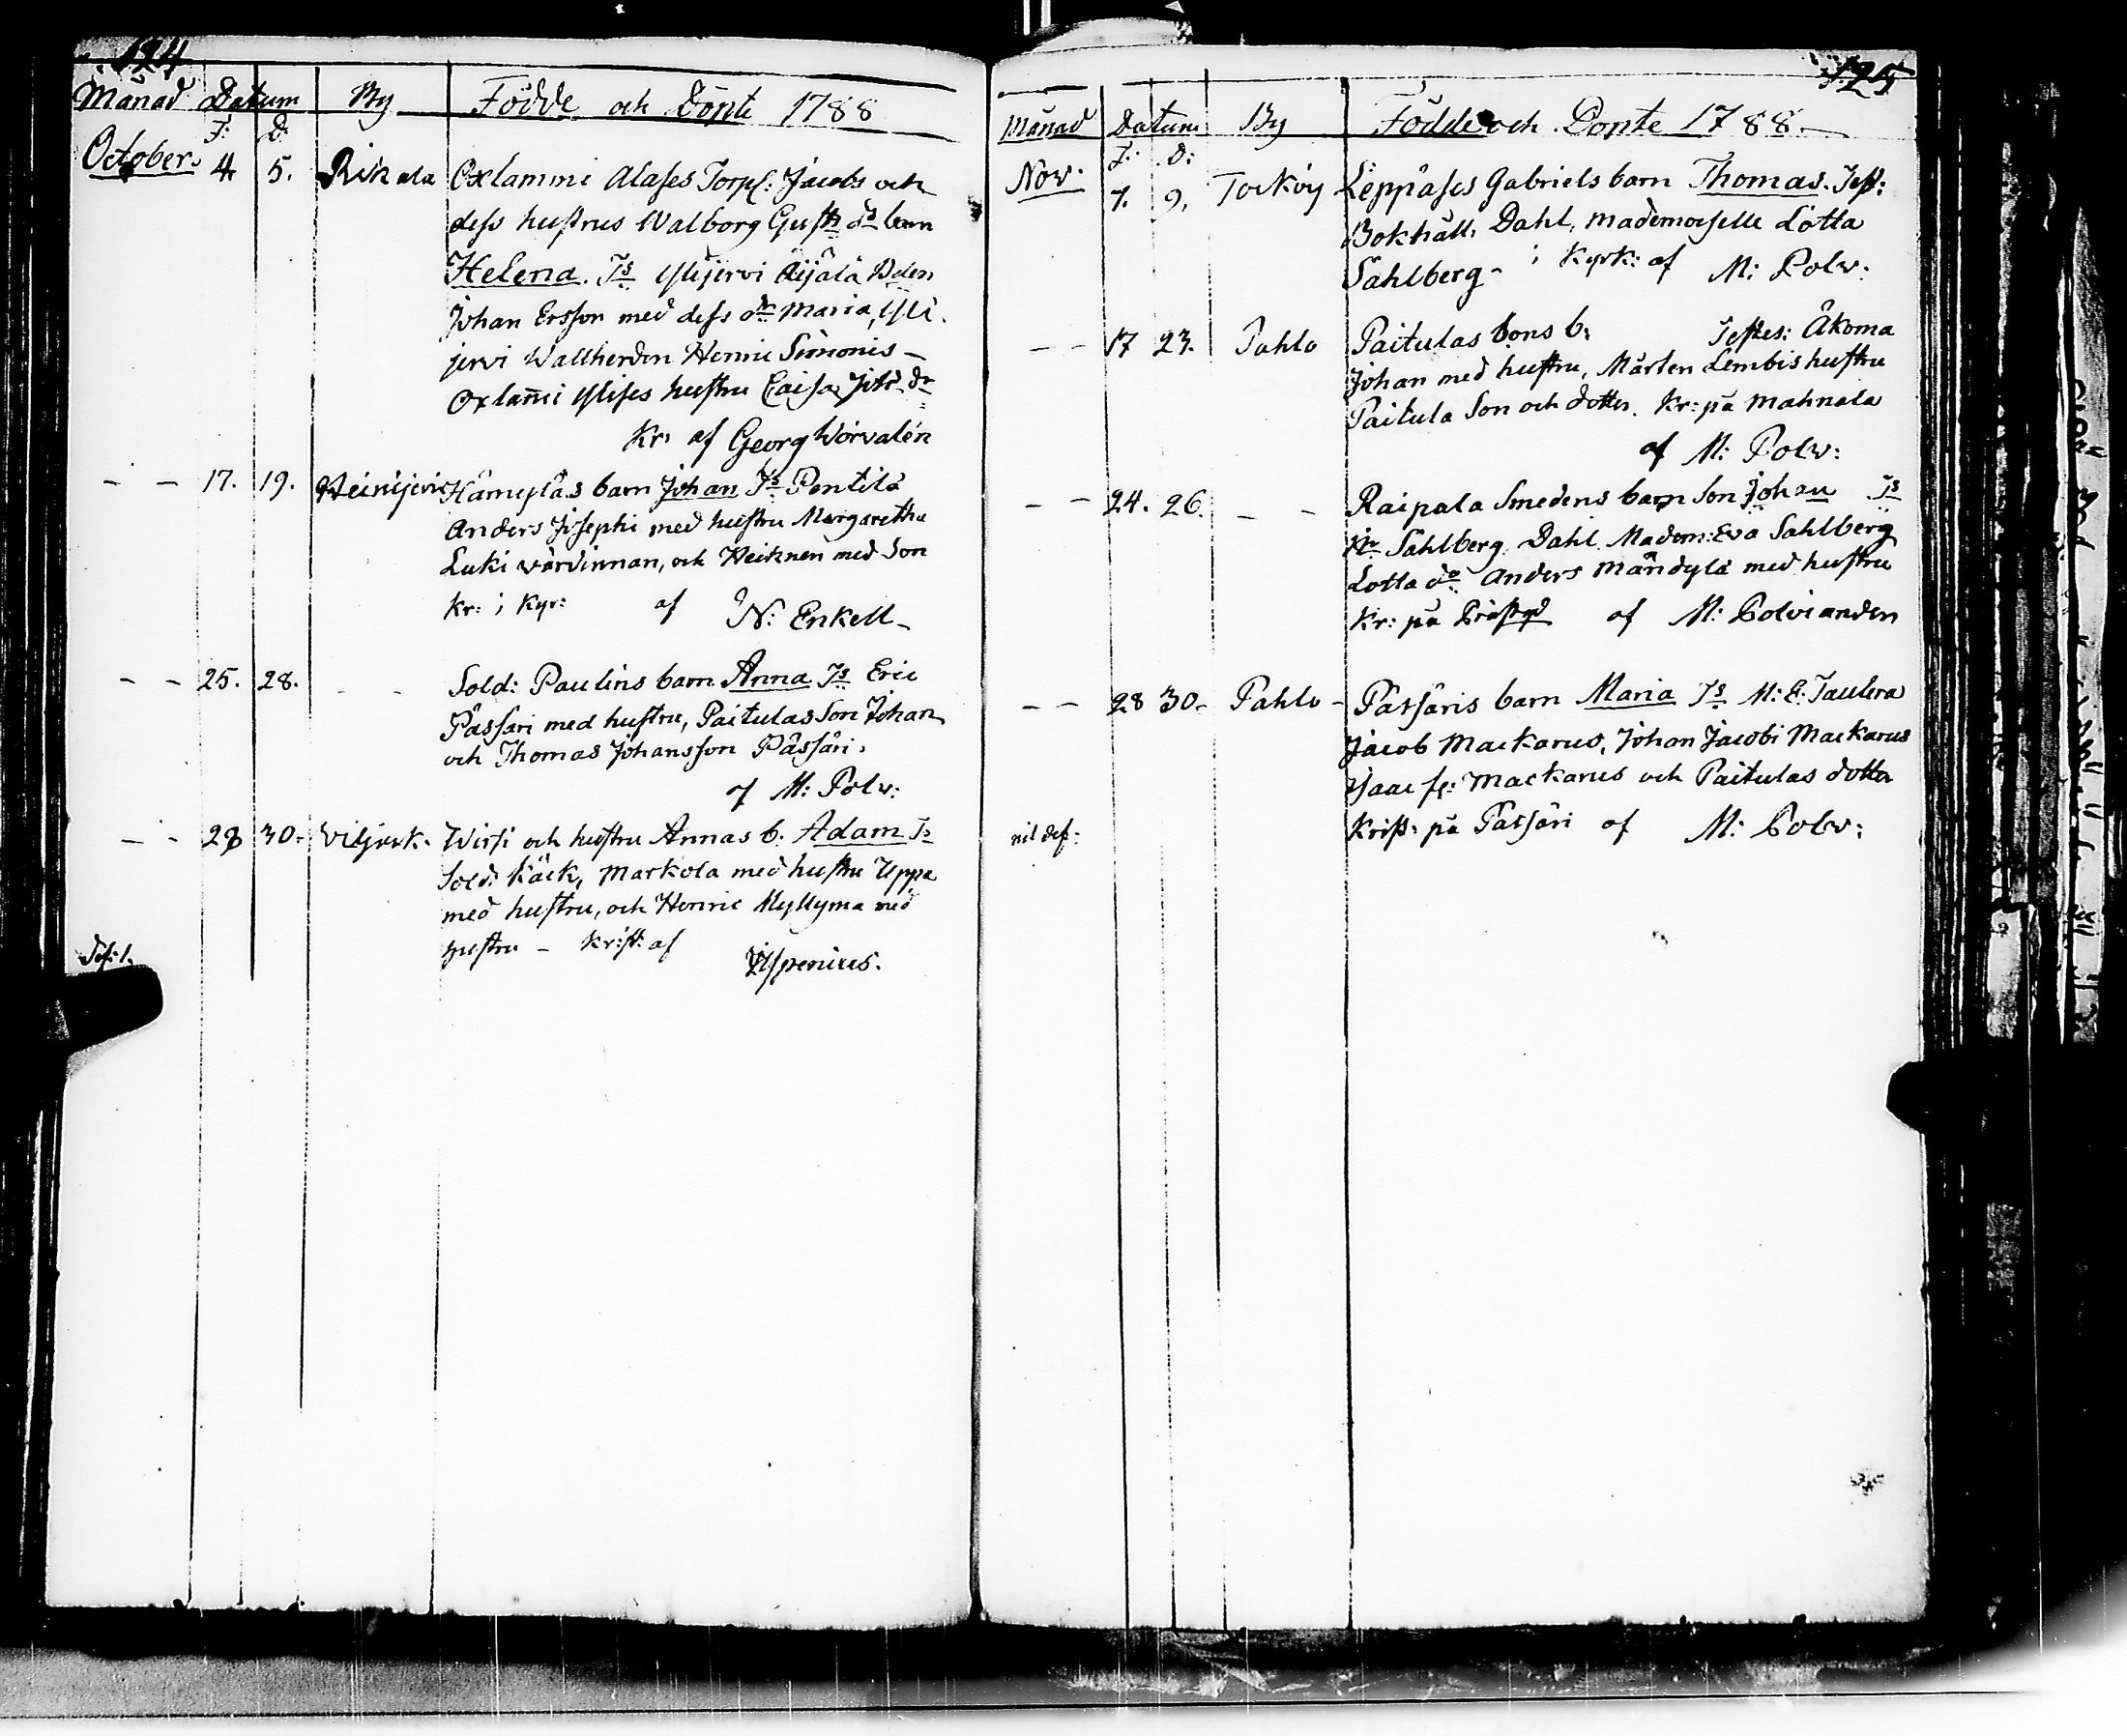 124
Månad Datum By Födde och Döpte 1788
F: D:
October. 4. 5. Rikala Oxlammi Alases Torp: Jacobs och
dess hustrus Walborg Gust: dr barn
Helena. Ts Ylijervi Äijälä
Johan Ersson med dess dr Maria, Yli
jervi Wallherden Henric Simonis –
Oxlam̄i Ylises hustru Caisa dr
Kr: af Georg Worvalén
– – 17. 19. Heinijervi Hämyläs barn Johan Ts Pentilä
Anders Josephi med hustru Margaretha
Luki värdinnan, och Heiknen med Son
Kr: i Kyr: af N: Enkell –
– – 25. 28. – – Sold: Paulins barn Anna Ts Eric
Pässäri med hustru, Paitulas Son Johan
och Thomas Johansson Pässäri.
af M: Polv:
– – 28 30. Wirsi och hustru Annas b: Adam Ts
Sold: Käck, Markola med hustru Uppa
med hustru, och Henric Myllymä med
hustru – Krist: af
125
Månad Datum By Födde och Döpte 1788. –
F: D:
Nov. 7. 9. Leppäses Gabriels barn Thomas. Test:
Bokhåll: Dahl, Mademoiselle Lotta
Sahlberg – i Kyrk: af M: Polv:
– – 17 23. Pahlo Paitulas Sons b: Testes: Äkoma
Johan med hustru, Mårten Lembis hustru
Paitula Son och dotter. Kr: på Mahnala
af M: Polv:
– 24. 26. – – Raipala Smedens barn Son Johan Ts
Hr Sahlberg. Dahl. Madem: Eva Sahlberg
Lotta do Anders Mändylä med hustru
Kr: på af M: Polvianden
– – 28 30. Pahlo – Passäris barn Maria Ts M: E: Taulera
Jacob Mackarus, Johan Jacobi Mackarus
Isaac Mackarus och Paitulas dotter
nil def: Krist: på Passäri af M: Polv: